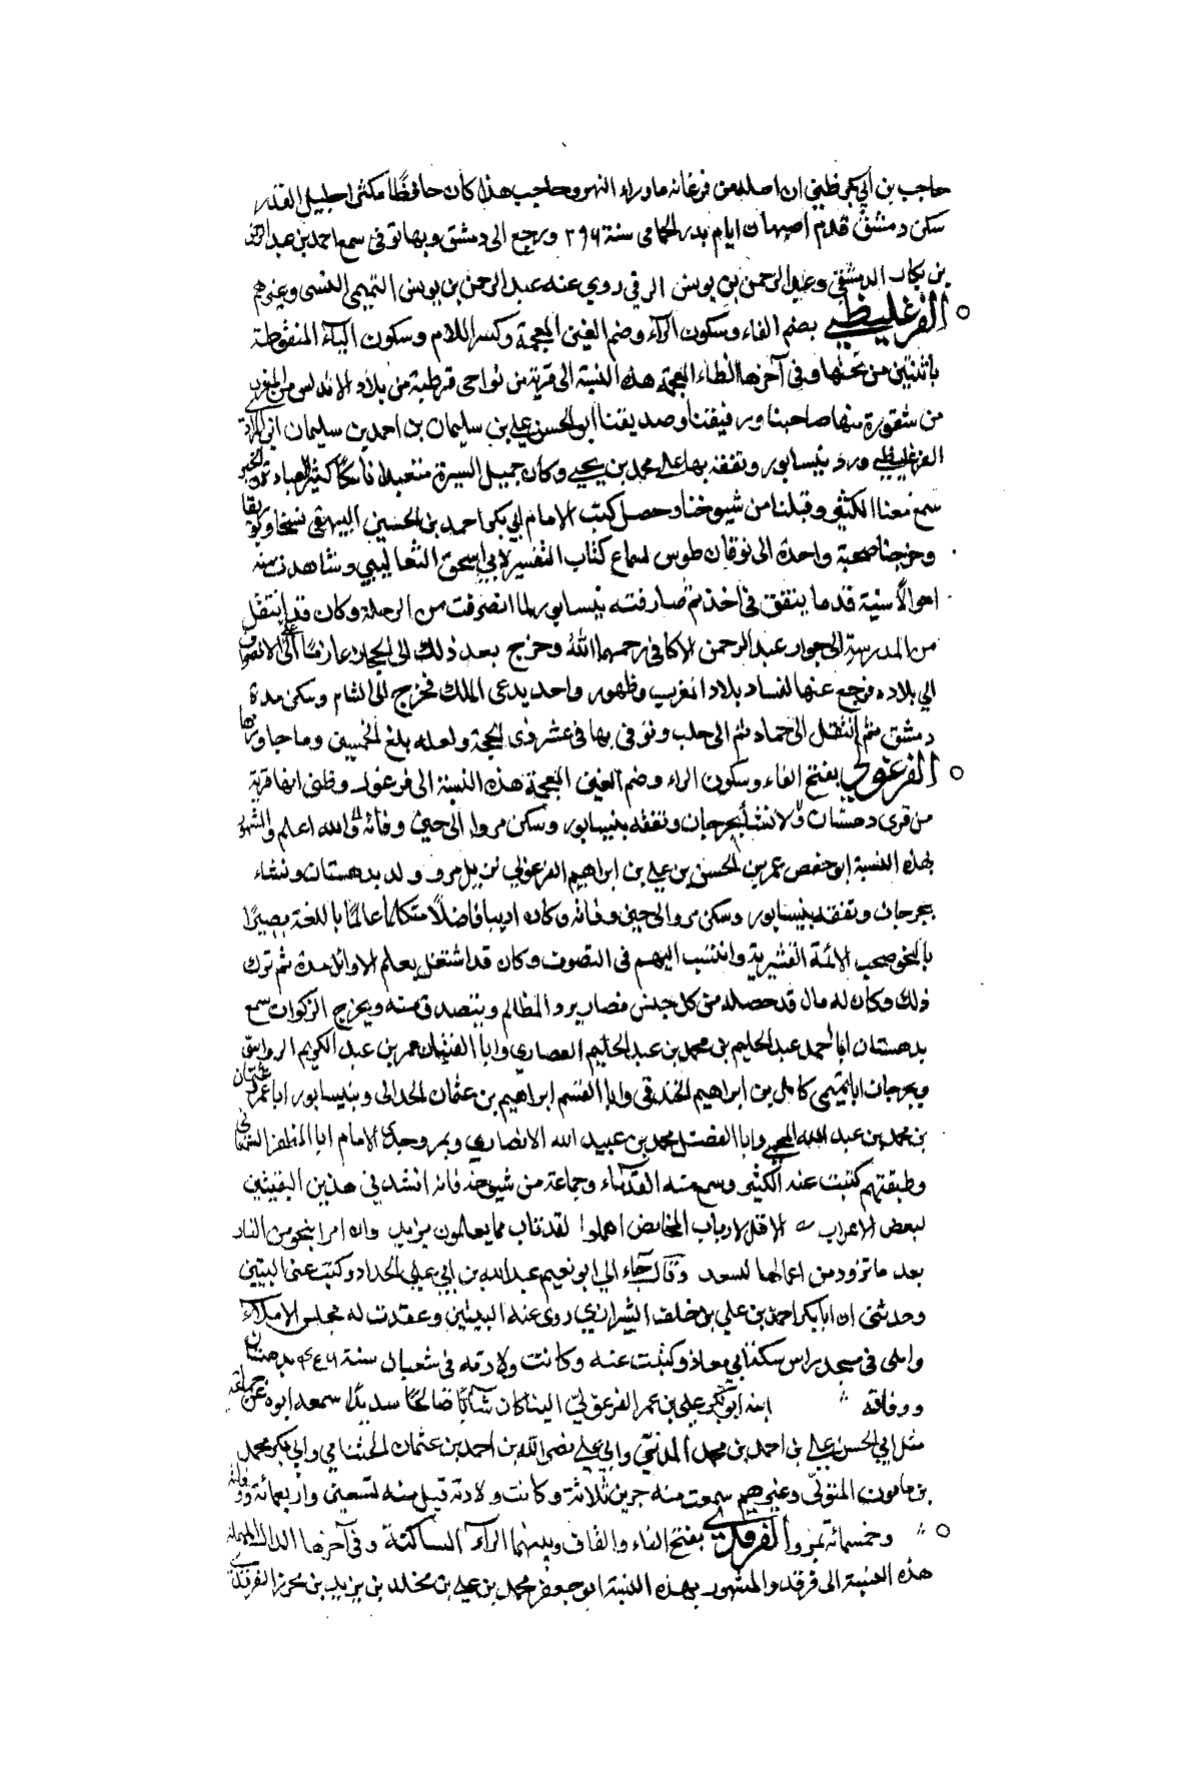 حاجب بن ابي بكر ظني ان اصله من فرغانة ما وراء النهر وحاجب هذا كان حافظًا مكثرا جليل القدر
سكن دمشق قدم اصبهان ايام بدر الحمامي سنة ٢٩٦ ورجع الى دمشق وبها توفى سمع احمد بن عبد الرحمن
بن بكار الدمشقي وعبد الرحمن بن يونس الرقي روي عنه عبد الرحمن بن يونس التميمى النسى وغيرهم
الفرغليظي بضم الفاء وسكون الراء وضم الغين المعجمة وكسر اللام وسكون الياء المنقوطة
باثنتين من تحتها وفى آخرها الظاء المعجمة هذه النسبة الى قرية من نواحى قرطبة من بلاد الاندلس من المغرب
من شقورة منها صاحبنا ورفيقنا وصديقنا ابو الحسن علي بن سليمان بن احمد بن سليمان المرادي
الفرغليظي ورد نيسابور وتفقه بها على محمد بن يحيي وكان جميل السيرة متعبدا ناسكًا كثير العبادة
سمع معنا الكثير وقبلنا من شيوخنا وحصل كتب الامام ابي بكر احمد بن الحسين البيهقى نسخا
وخرجنا صحبة واحدة الى نوقان طوس لسماع كتاب التفسير لابي اسحق الثعالبي وشاهدت منه
احوالًا سنية قد ما يتفق فى احد ثم صارفته بنيسابور لما انصرفت من الرحلة وكان قد انتقل
من المدرسة الى جوار عبد الرحمن الاكافى رحمهما الله وخرج بعد ذلك الى الحجاز عازمًا على الانصراف
الي بلاده فرجع عنها لفساد بلاد المغرب وظهور واحد يدعى الملك فخرج الى الشام وسكن مدة
دمشق ثم انتقل الى حماه ثم الى حلب وتوفى بها فى عشر ذى الحجة ولعله بلغ الخمسين وما جاوزها
الفرغولي بفتح الفاء وسكون الراء وضم الغين المعجمة هذه النسبة الى فرغول وظنى انها قرية
من قرى دهستان بجرجان وتفقه بنيسابور وسكن مرو الى حين وفاته والله اعلم والمشهور
بهذه النسبة ابو حفص عمر بن الحسن بن علي بن ابراهيم الفرغولي نزيل مرو ولد بدهستان ونشاء
بجرجان وتفقه بنيسابور وسكن مرو الى حين وفاته وكان اديبا فاضلًا متكلمًا عالمًا باللغة بصيرًا
بالنحو صحب الائمة القشيرية وانتسب اليهم فى التصوف وكان قد اشتغل بعلم الاوائل مدة ثم ترك
ذلك وكان له مال قد حصله من كل جنس فصار يرد المظالم ويتصدق منه ويخرج الزكوات سمع
بدهستان ابا احمد عبد الحليم بن محمد بن عبد الحليم العصاري وابا الفتيان عمر بن عبد الكريم الرواسي
وبجرجان ابا تميم كامل بن ابراهيم الخندقى وابا القسم ابراهيم بن عثمان وبنيسابور ابا عمرو عثمان
بن محمد بن عبد الله المحمي وابا الفضل محمد بن عبيد الله الانصاري وبمرو جدي الامام ابا المظفر السمعاني
وطبقتهم كتبت عنه الكثير وسمع منه القدماء وجماعة من شيوخنا فانه انشدني هذين البيتين
لبعض الاعراب الا قل لارباب المخايض اهملوا لقد تاب مما يعلمون يزيد وان امرا ينجو من النار
بعد ما تزود من اعمالها لسعيد وقال جاء الي ابو نعيم عبد الله بن ابي علي الحداد وكتب عنى البيتين
وحدثنى ان ابا بكر احمد بن علي بن خلف الشيرازي روى عنه البيتين وعقدت له مجلس الاملاء
واملى فى مسجد براس سكة ابي معاذ وكتبت عنه وكانت ولادته فى شعبان سنة بدهستان
ووفاته ابنه ابو بكر علي بن عمر الفرغولي الينا كان شابًا صالحًا سديدًا سمعه ابوه عن جماعة
مثل ابي الحسن علي بن احمد بن محمد المديني وابي علي نصر الله بن احمد بن عثمان الخشنامي وابي بكر محمد
بن مامون المتولي وغيرهم سمعت منه جزين ثلاثة وكانت ولادته قبل سنة تسعين واربعمائة ووفاته
وخمسمائة بمرو الفرقدي بفتح الفاء والقاف وبينهما الراء الساكنة وفى آخرها الدال المهملة
هذه النسبة الى فرقد والمشهور بهذه النسبة ابو جعفر محمد بن علي بن مخلد بن يزيد بن محرز الفرقدي